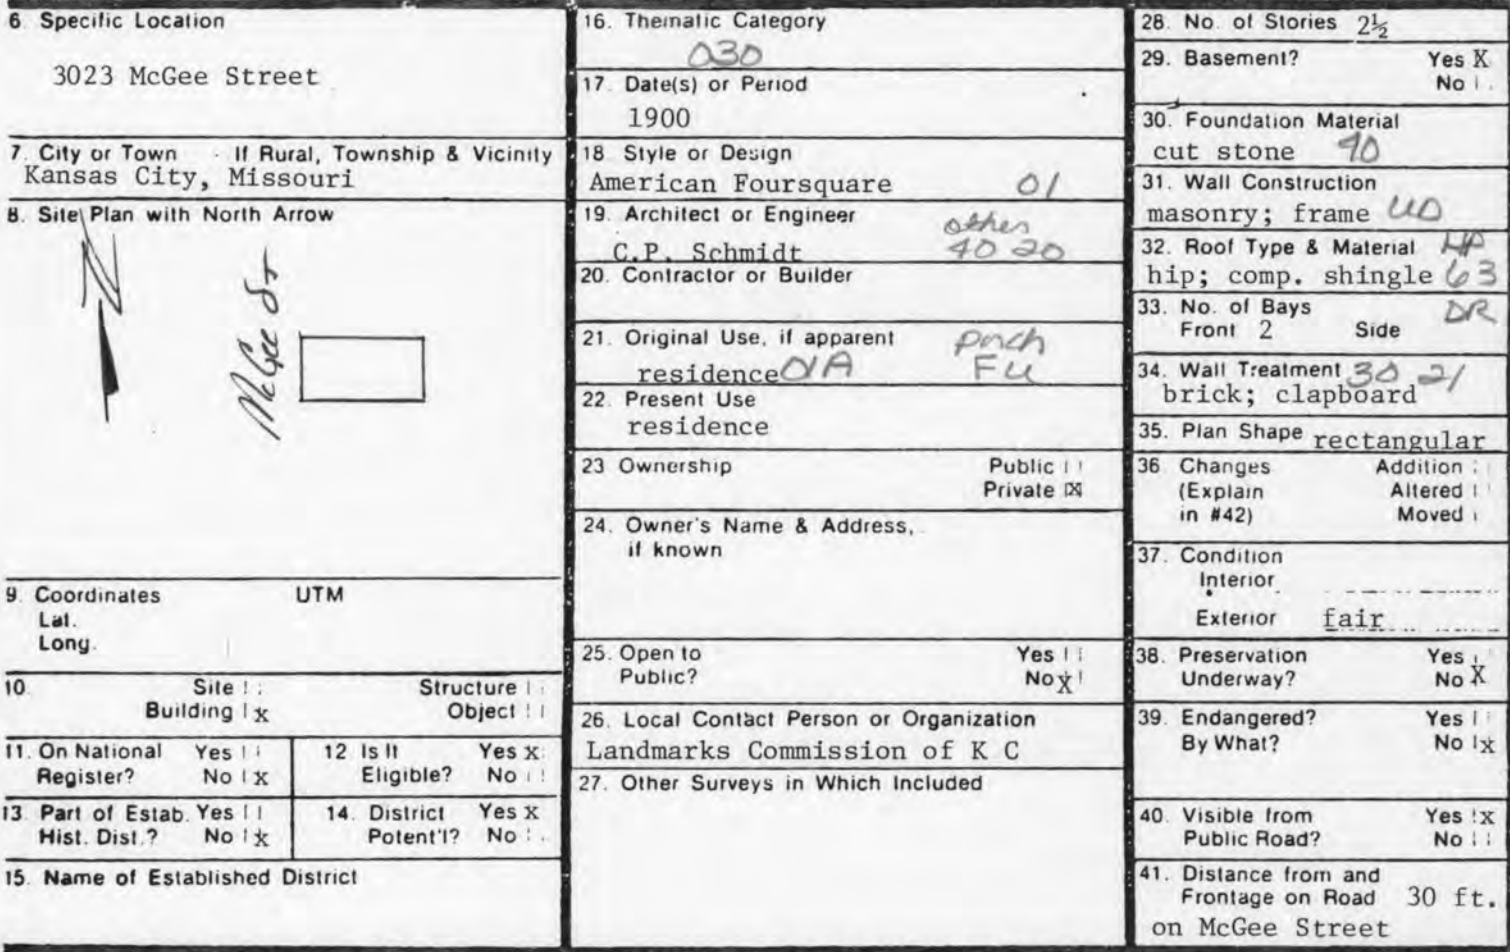 6. Specific Location
3023 McGee Street
7. City or Town If Rural, Township & Vicinity
Kansas City, Missouri
8. Site Plan with North Arrow
N
McGee St
9. Coordinates UTM
Lat.
Long.
10. Site
Structure
Building x
Object
11. On National Register? Yes No x
12 Is It Eligible? Yes X No
13. Part of Estab. Hist. Dist.? Yes No x
14. District Potent'l? Yes X No
15. Name of Established District
16. Thematic Category
030
17. Date(s) or Period
1900
18 Style or Design
American Foursquare 01
19. Architect or Engineer
other
C.P. Schmidt 40 20
20. Contractor or Builder
21. Original Use, if apparent porch
residence 01A FU
22. Present Use
residence
23 Ownership Public
Private X
24. Owner's Name & Address,
if known
25. Open to Yes
Public? No X
26. Local Contact Person or Organization
Landmarks Commission of K C
27. Other Surveys in Which Included
28. No. of Stories 2½
29. Basement? Yes X
No
30. Foundation Material
cut stone 40
31. Wall Construction
masonry; frame UD
32. Roof Type & Material HP
hip; comp. shingle 63
33. No. of Bays DR
Front 2 Side
34. Wall Treatment 30 21
brick; clapboard
35. Plan Shape rectangular
36. Changes Addition
(Explain Altered
in #42) Moved
37. Condition
Interior
Exterior fair
38. Preservation Yes
Underway? No X
39. Endangered? Yes
By What? No x
40. Visible from Yes x
Public Road? No
41. Distance from and
Frontage on Road 30 ft.
on McGee Street